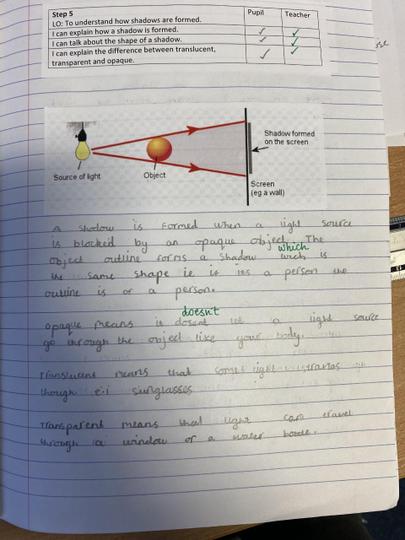 Step 5
Pupil
Teacher
LO: To understand how shadows are formed.
I can explain how a shadow is formed.
I can talk about the shape of a shadow.
I can explain the difference between translucent,
transparent and opaque.
Source of light
Object
Shadow formed
on the screen
Screen
(eg a wall)
A shadow is formed when a light source
is blocked by an opaque object. The
which
object outline forms a shadow wich is
the same shape ie if its a person the
outline is of a person.
doesn't
opaque means it dosent let a light source
go through the object like your body.
Translucent means that some light
though e.i sunglasses
Transparent means that light can travel
through a window or a water bottle.